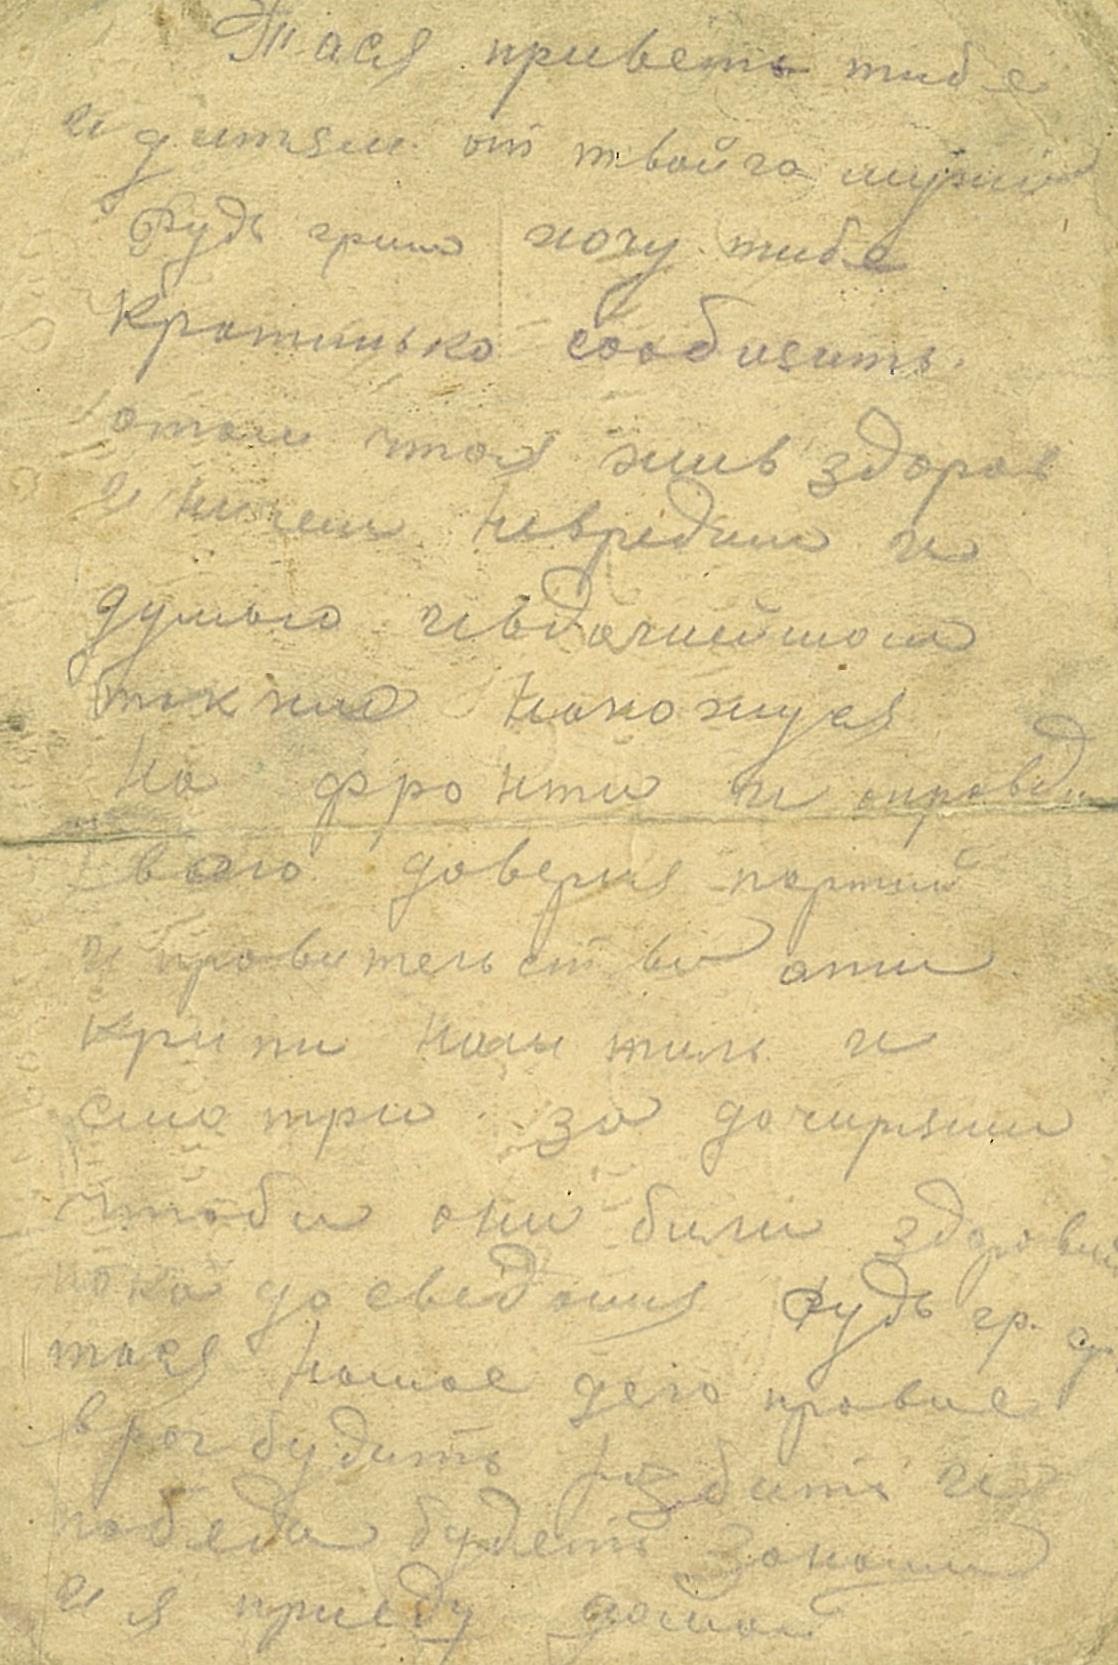 Тася приветь тибе
и дитям от твайго мужа
Рудь гриш хочу тибе
кратинько сообщить
отом что я жив здоров
и ничем невредим и
думаю и в дальнейшом
так же нахожуся
на фронти и оправды
ваю доверия партий
и правительства ати
крипи наш тиль и
смотри за дочирями
чтоби они били здорови
пока до сведания Рудь гр.
тася нашое дело правие
враг будить разбить и
победа будеть за нами
и я приеду домой